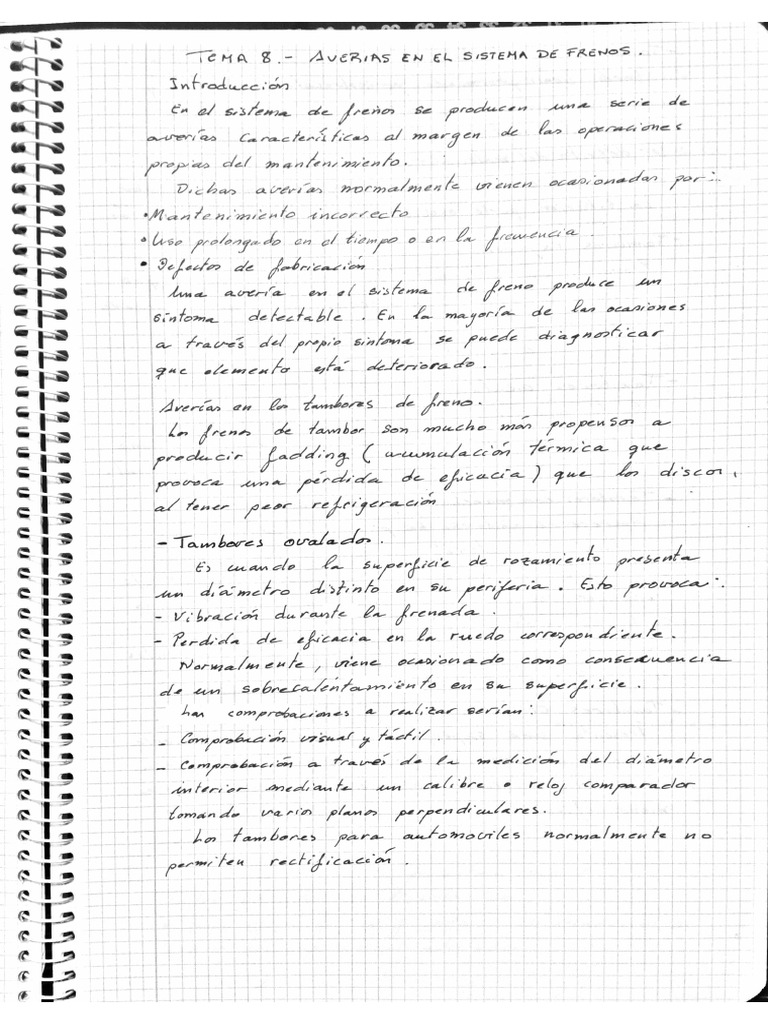 TEMA 8.- AVERIAS EN EL SISTEMA DE FRENOS.
Introducción
En el sistema de freños se producen una serie de
averías características al margen de las operaciones
propias del mantenimiento.
Dichas averías normalmente vienen ocasionadas por:..
• Mantenimiento incorrecto
• Uso prolongado en el tiempo o en la frecuencia.
• Defectos de fabricación
Una avería en el sistema de freno produce un
síntoma detectable. En la mayoría de las ocasiones
a través del propio sintoma se puede diagnosticar
que elemento está deteriorado.
Averías en los tambores de freno.
Los frenos de tambor son mucho más propensos a
producir fadding (acumulación térmica que
provoca una pérdida de eficacia) que los discos,
al tener peor refrigeración
- Tambores ovalados.
Es cuando la superficie de rozamiento presenta
un diámetro distinto en su periferia. Esto provoca:
- Vibración durante la frenada.
- Perdida de eficacia en la rueda correspondiente.
Normalmente, viene ocasionado como consecuencia
de un sobrecalentamiento en su superficie.
Las comprobaciones a realizar serían:
- Comprobación visual y táctil.
- Comprobación a través de la medición del diámetro
interior mediante un calibre o reloj comparador
tomando varios planos perpendiculares.
Los tambores para automoviles normalmente no
permiten rectificación.